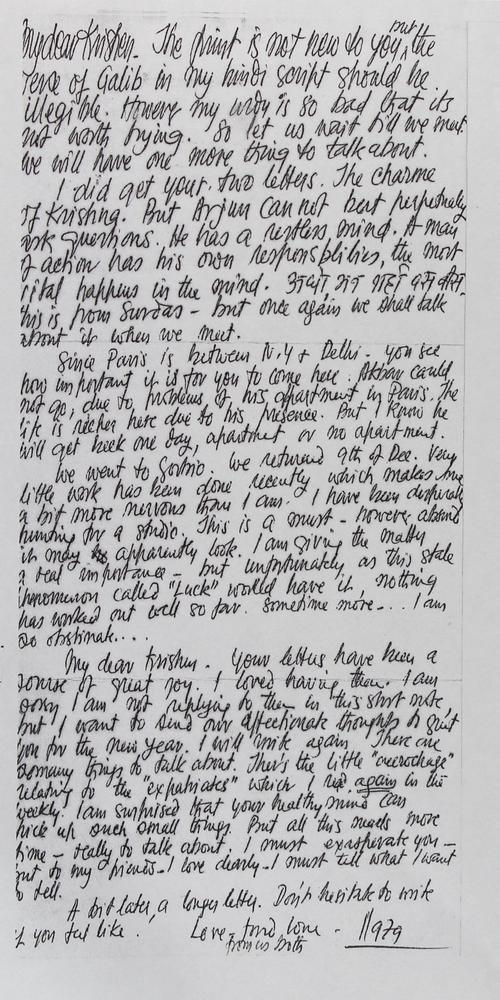 My dear Krishen. The point is not new to you, but the
verse of Galib in my hindi script should be
illegible. However my urdu is so bad that its
not worth trying. So let us wait till we meet
we will have one more thing to talk about.
I did get your two letters. The charme
of Krishna. But Arjun can not but perpetually
ask questions. He has a restless mind. A man
of action has his own responsbilities, the most
vital happens in the mind.
this is from Surdas - but once again we shall talk
about it when we meet.
Since Paris is between N.Y & Delhi - you see
how important it is for you to come here. Akbar could
not go, due to problems of his apartment in Paris. The
life is richer here due to his presence. But I know he
will get back one day, apartment or no apartment.
We went to Gorbio. We returned 9th of Dec. Very
little work has been done recently which makes me
a bit more nervous than I am. I have been desperately
hunting for a studio. This is a must - however absurd
it may apparently look. I am giving the matter
a real importance - but unfortunately as this stale
phenomenon called "Luck" would have it, nothing
has worked out well so far. Sometime more... I am
so obstinate....
My dear Krishen. Your letters have been a
source of great joy. I loved having them. I am
sorry I am not replying to them in this short note,
but I want to send our affectionate thoughts to greet
you for the new year. I will write again. There are
so many things to talk about. Ther's the little "accrochage"
relating to the "expatriates" which I read again in the
weekly. I am surprised that your healthy mind can
pick up such small things. But all this needs more
time - really to talk about. I must exasperate you -
but to my friends - I love dearly - I must tell what I want
to tell.
A bit later, a longer letter. Don't hesitate to write
if you feel like. Love - and love -
from us both
1979